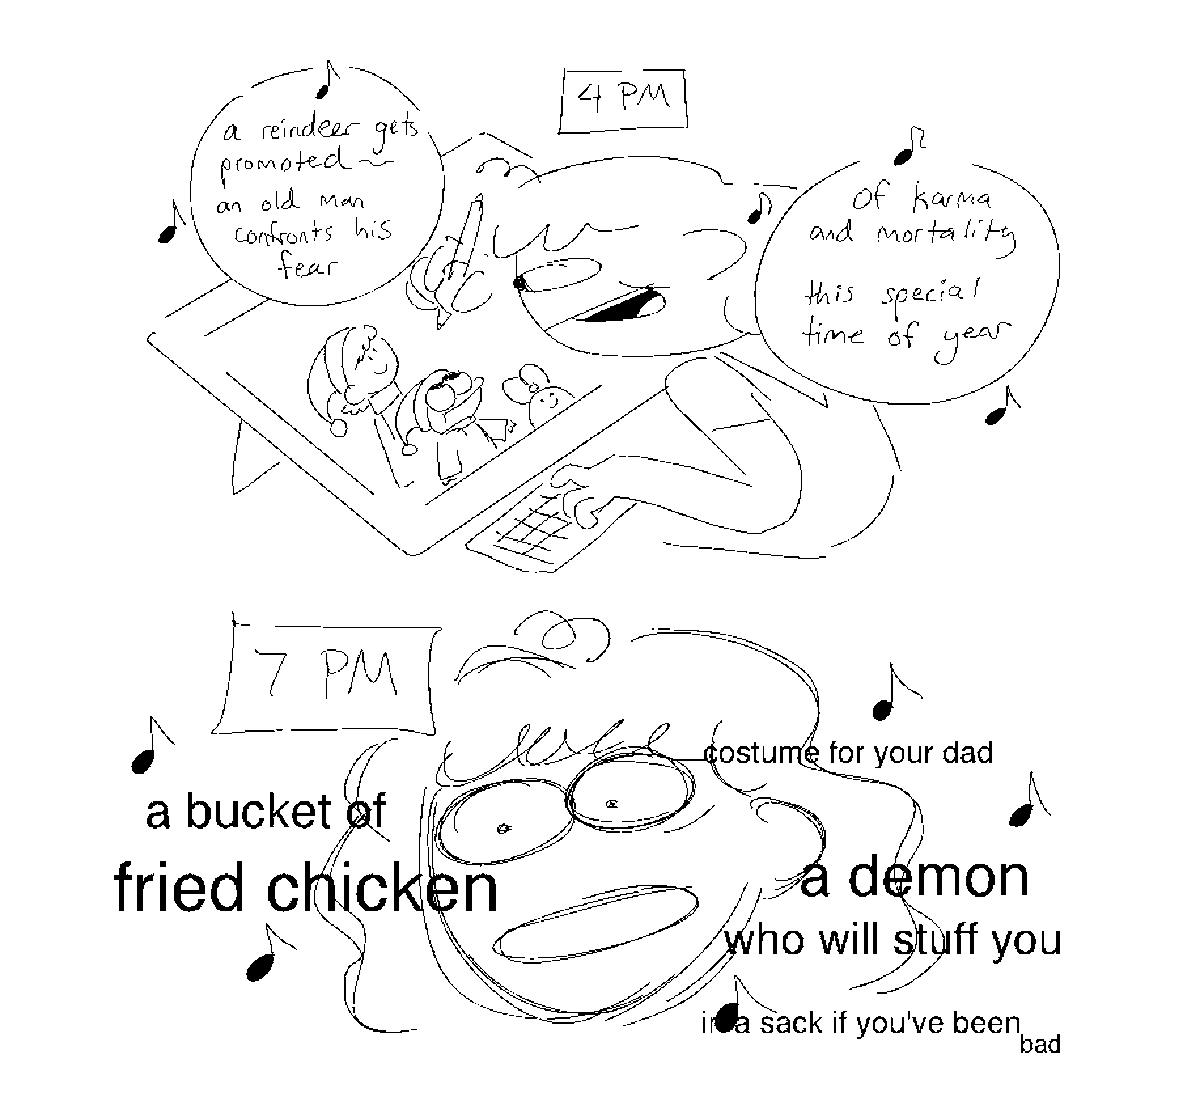 4 PM
a reindeer gets
promoted ~
an old man
confronts his
fear
Of karma
and mortality
this special
time of year
7 PM
costume for your dad
a bucket of
fried chicken
a demon
who will stuff you
in a sack if you've been
bad